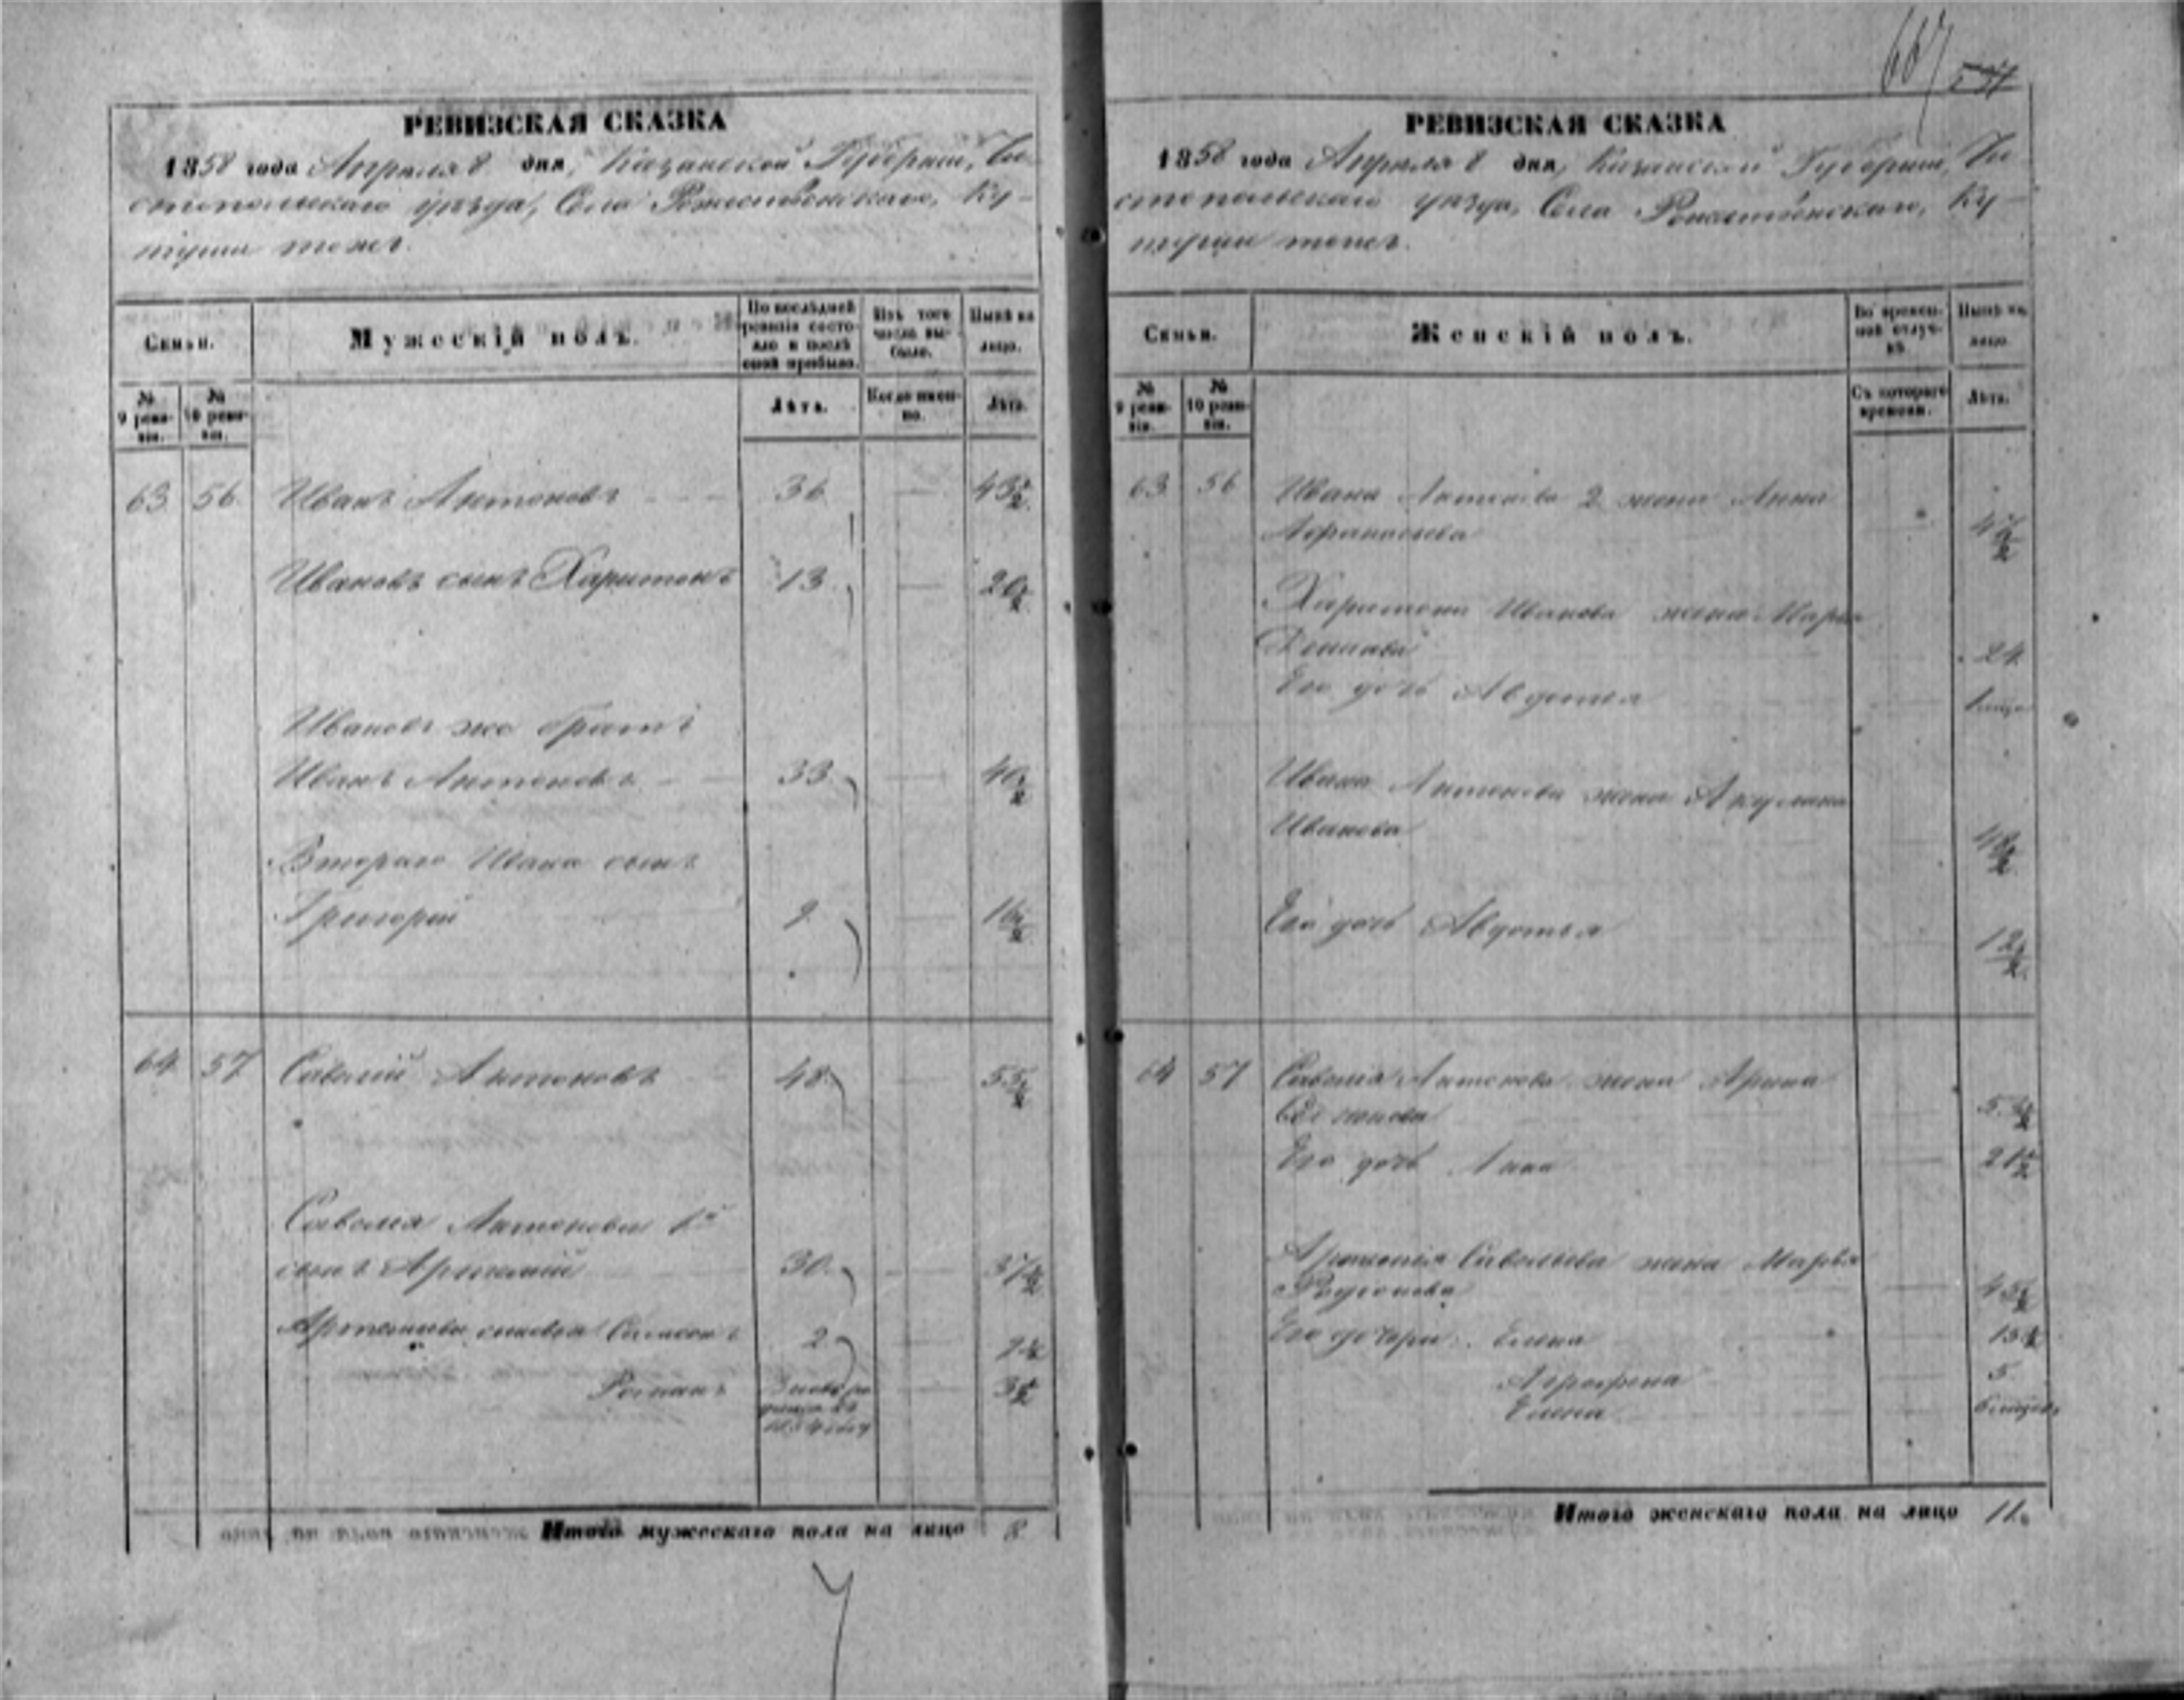 667
РЕВИЗСКАЯ СКАЗКА
1858 года Апреля 8 дня, Казанской Губернии, Чи-
стопольскаго уѣзда, Села Рожественскаго, Ку-
туши тожъ.
Семьи.
Мужескій полъ.
По послѣдней ревизіи состояло и послѣ оной прибыло.
Изъ того числа выбыло.
Нынѣ на лицо.
№ 9 ревизіи.
№ 10 ревизіи.
Лѣта.
Когда именно.
Лѣта.
63 56 Иванъ Антоновъ 36 43½
Ивановъ сынъ Харитонъ 13 20½
Ивановъ же братъ
Иванъ Антоновъ 33 40½
Втораго Ивана сынъ
Григорій 9 16½
64 57 Савелій Антоновъ 48 55½
Савелья Антонова 1й
сынъ Артемій 30 37½
Артемьевы сыновья Самсонъ 2 9½
Романъ 3½
Итого мужескаго пола на лицо 8
РЕВИЗСКАЯ СКАЗКА
1858 года Апреля 8 дня, Казанской Губерніи, Чи-
стопольскаго уѣзда, Села Рожественскаго, Ку-
туши тожъ.
Семьи.
Женскій полъ.
Во временной отлучкѣ.
Нынѣ на лицо.
№ 9 ревизіи.
№ 10 ревизіи.
Съ котораго времени.
Лѣта.
63 56 Ивана Антонова 2 жена Анна
Афанасьева
Харитона Иванова жена Марья
24
Его дочь Авдотья
Ивана Антонова жена Акулина
Иванова
Его дочь Авдотья
12½
64 57 Савелья Антонова жена Арина
Его дочь Анна 21½
Артемья Савельева жена Марья
Родионова
Его дочери: Елена 15½
Аграфена 5
Елена
Итого женскаго пола на лицо 11.